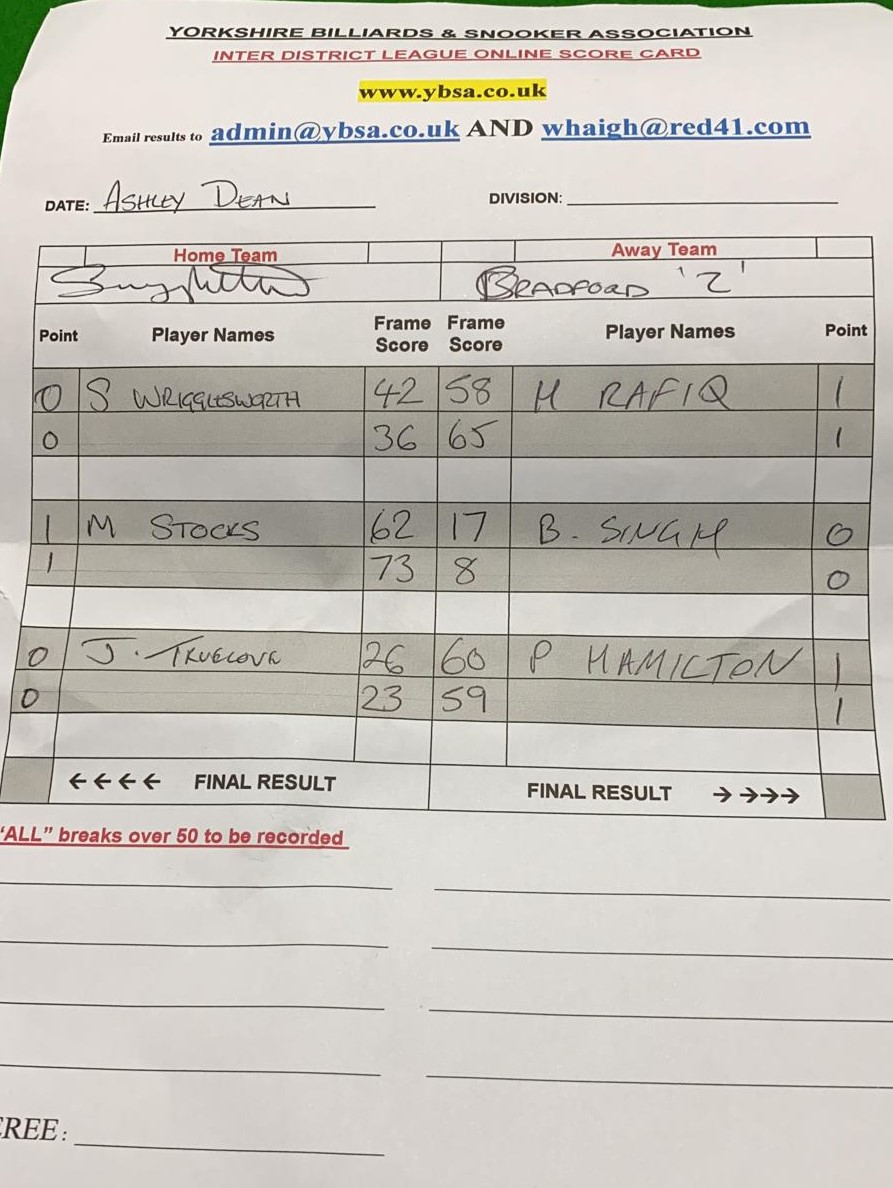 YORKSHIRE BILLIARDS & SNOOKER ASSOCIATION
INTER DISTRICT LEAGUE ONLINE SCORE CARD
www.ybsa.co.uk
Email results to admin@ybsa.co.uk AND whaigh@red41.com
DATE: ASHLEY DEAN DIVISION:
Home Team Away Team
BRADFORD 'Z'
Point Player Names Frame Score Frame Score Player Names Point
0 S WRIGGLESWORTH 42 58 H RAFIQ 1
0 36 65 1
1 M STOCKS 62 17 B. SINGH 0
1 73 8 0
0 J. TRUELOVE 26 60 P HAMILTON 1
0 23 59 1
←←←← FINAL RESULT FINAL RESULT →→→→
"ALL" breaks over 50 to be recorded
EREE: